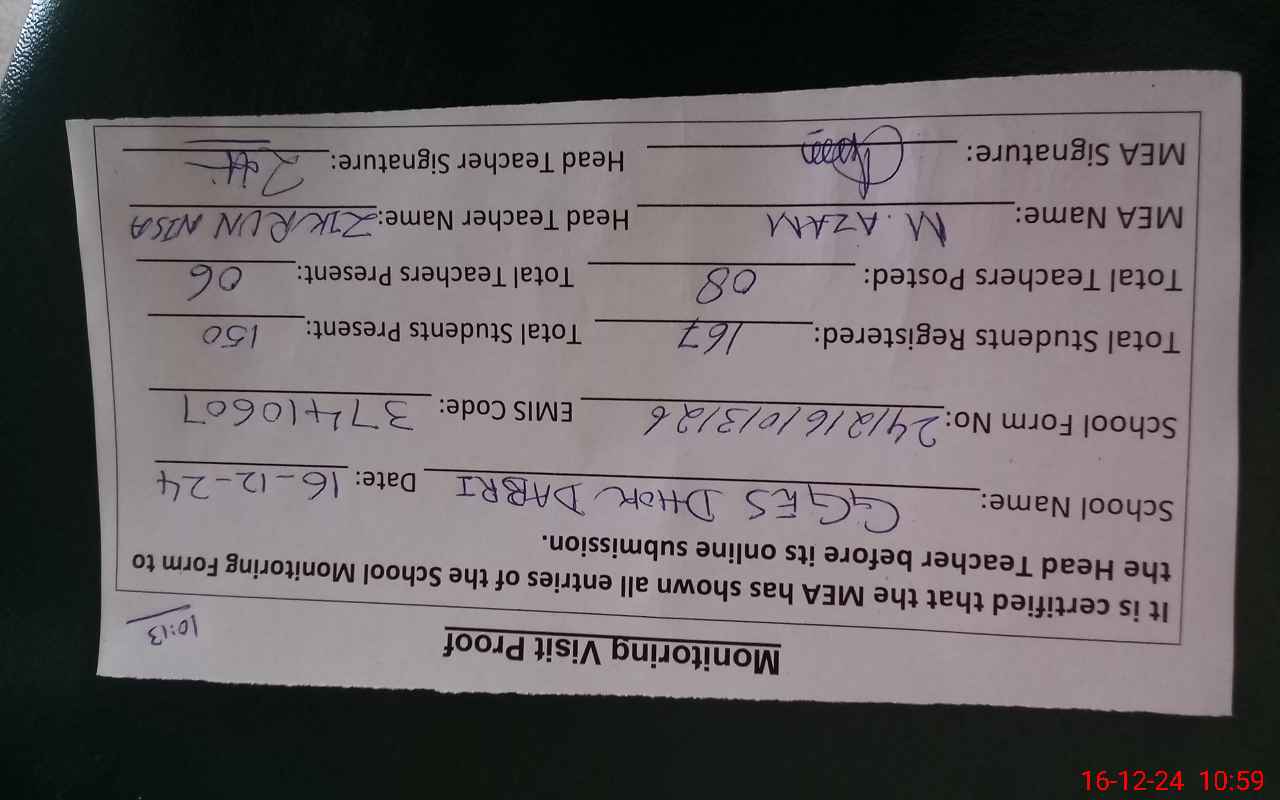 Monitoring Visit Proof
10:13
It is certified that the MEA has shown all entries of the School Monitoring Form to
the Head Teacher before its online submission.
School Name: GGES DHOK DABRI Date: 16-12-24
School Form No: 241216101312 6 EMIS Code: 37410607
Total Students Registered: 167 Total Students Present: 150
Total Teachers Posted: 08 Total Teachers Present: 06
MEA Name: M. AZAM Head Teacher Name: ZIKRUN NISA
MEA Signature: Head Teacher Signature:
16-12-24 10:59